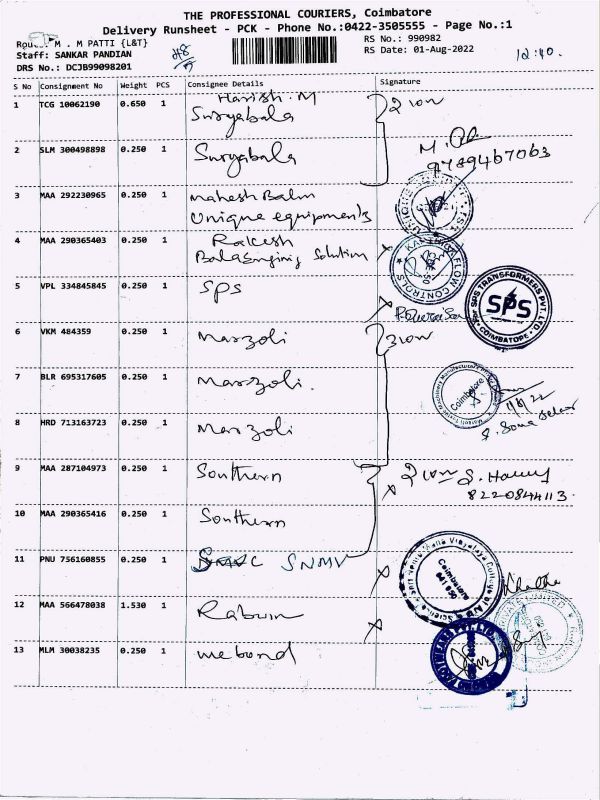 THE PROFESSIONAL COURIERS, Coimbatore
Delivery Runsheet - PCK - Phone No.:0422-3505555 - Page No.:1
M . M PATTI {L&T}
RS No.: 990982
Staff: SANKAR PANDIAN
RS Date: 01-Aug-2022
12:40.
DRS No.: DCJB99098201
S No Consignment No Weight PCS Consignee Details Signature
1 TCG 10062190 0.650 1 Harish.M
Suryabala
2 SLM 300498898 0.250 1 Suryabala
9789467063
3 MAA 292230965 0.250 1 Mahesh Balm
Unique equipments
4 MAA 290365403 0.250 1 Rakesh
Solution
5 VPL 334845845 0.250 1 SPS
For SPS TRANSFORMERS PVT. LTD.
SPS
COIMBATORE
6 VKM 484359 0.250 1 Marzoli
7 BLR 695317605 0.250 1 Marzoli.
Coimbatore
8 HRD 713163723 0.250 1 Marzoli
9 MAA 287104973 0.250 1 Southern
8220844113.
10 MAA 290365416 0.250 1 Southern
11 PNU 756160855 0.250 1 SNMV
Coimbatore
641 050
12 MAA 566478038 1.530 1
13 MLM 30038235 0.250 1 webond